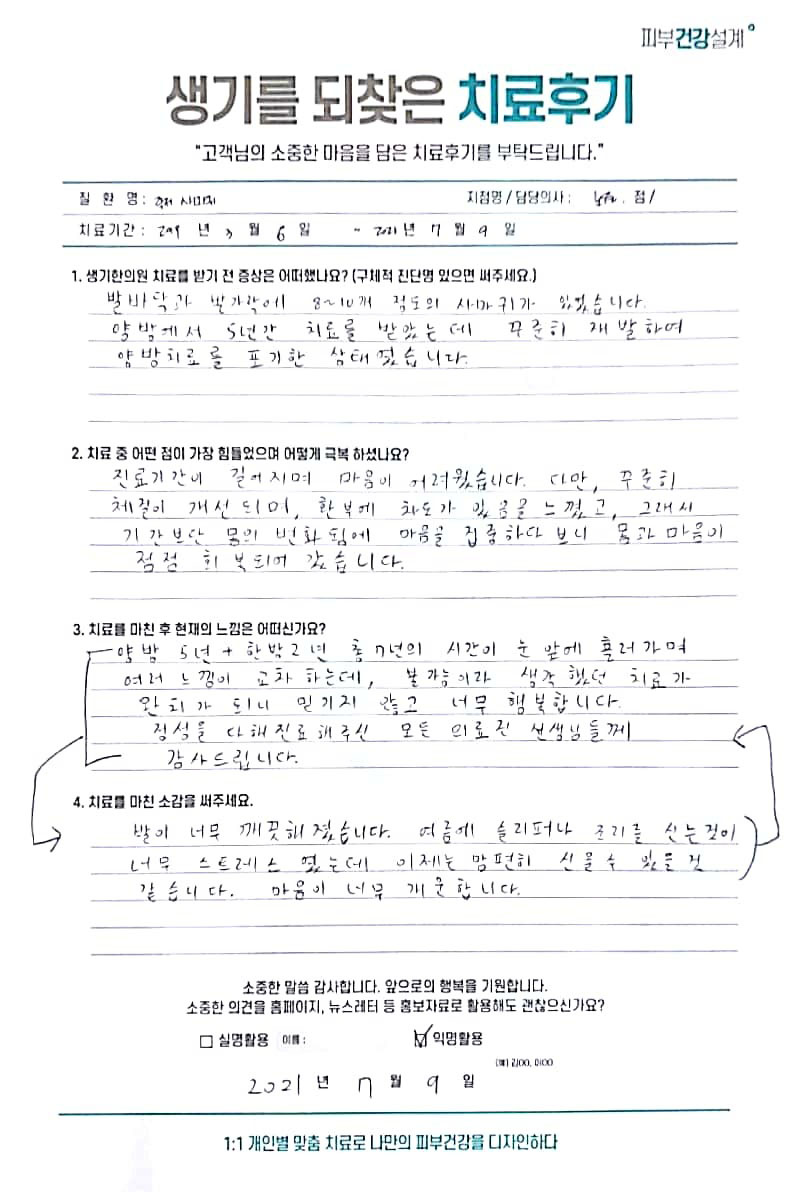 피부건강설계
생기를 되찾은 치료후기
"고객님의 소중한 마음을 담은 치료후기를 부탁드립니다."
질 환 명 : 지점명 / 담당의사 : 점 /
치료기간 : 년 3 월 6 일 ~ 2021 년 7 월 9 일
1. 생기한의원 치료를 받기 전 증상은 어떠했나요? (구체적 진단명 있으면 써주세요.)
발바닥과 발가락에 8~10개 정도의 사마귀가 있었습니다.
양방에서 5년간 치료를 받았는데 꾸준히 재발하여
양방치료를 포기한 상태였습니다.
2. 치료 중 어떤 점이 가장 힘들었으며 어떻게 극복 하셨나요?
진료기간이 길어지며 마음이 어려웠습니다. 다만, 꾸준히
체질이 개선되며, 환부에 차도가 있음을 느꼈고, 그래서
기간보단 몸의 변화됨에 마음을 집중하다 보니 몸과 마음이
점점 회복되어 갔습니다.
3. 치료를 마친 후 현재의 느낌은 어떠신가요?
양방 5년 + 한방 2년 총 7년의 시간이 눈 앞에 흘러가며
여러 느낌이 교차 하는데, 불가능이라 생각했던 치료가
완치가 되니 믿기지 않고 너무 행복합니다.
정성을 다해 진료해주신 모든 의료진 선생님들께
감사드립니다.
4. 치료를 마친 소감을 써주세요.
발이 너무 깨끗해졌습니다. 여름에 슬리퍼나 쪼리를 신는것이
너무 스트레스 였는데 이제는 맘편히 신을수 있을것
같습니다. 마음이 너무 개운합니다.
소중한 말씀 감사합니다. 앞으로의 행복을 기원합니다.
소중한 의견을 홈페이지, 뉴스레터 등 홍보자료로 활용해도 괜찮으신가요?
실명활용 이름 : 익명활용
(예) 김OO, 이OO
2021 년 7 월 9 일
1:1 개인별 맞춤 치료로 나만의 피부건강을 디자인하다